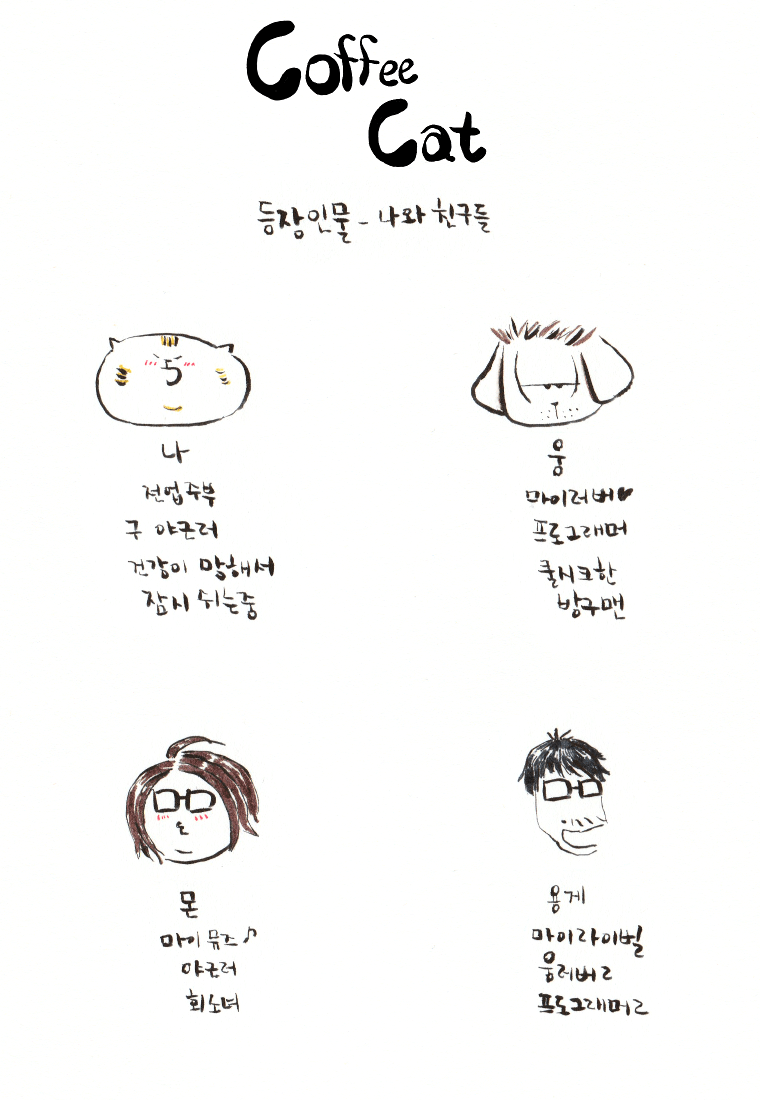 Coffee
Cat
등장인물 - 나와 친구들
나
전업주부
구 야근러
건강이 말해서
잠시 쉬는중
웅
마이러버♥
프로그래머
쿨시크한
방구맨
몬
마이뮤즈♪
야근러
회소녀
용게
마이라이벌
웅러버2
프로그래머2